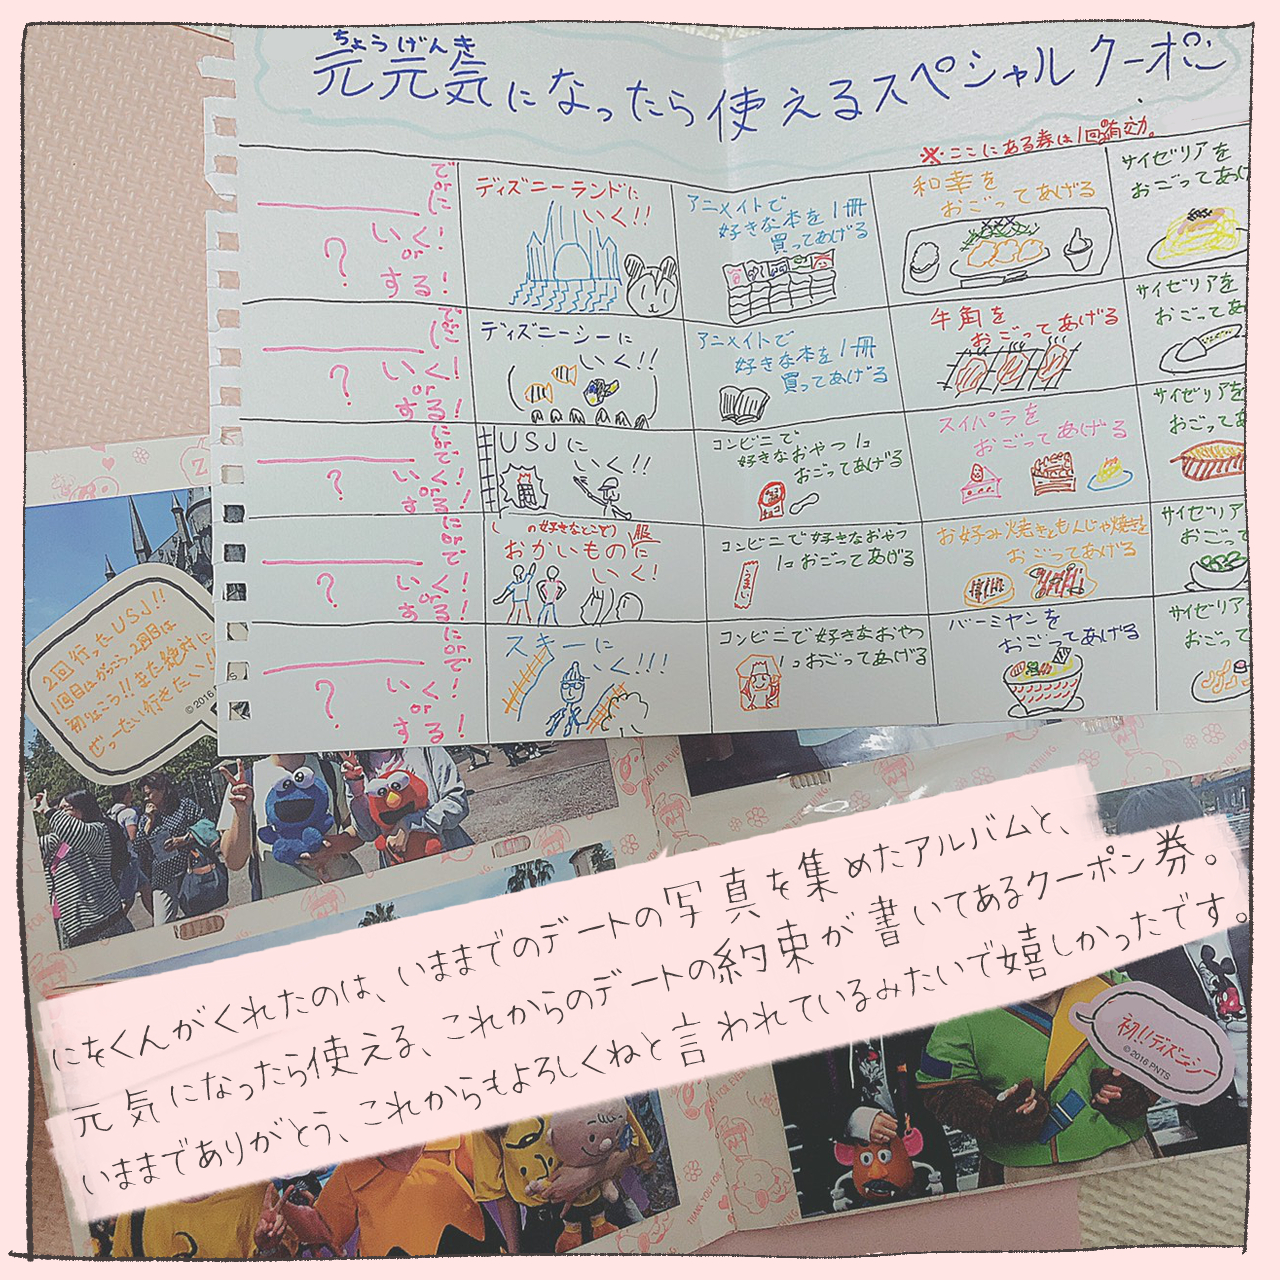 ちょうげんき
元元気になったら使えるスペシャルクーポン
※ここにある券は1回有効。
でorに
いく!
or
する!
?
ディズニーランドに
いく!!
アニメイトで
好きな本を1冊
買ってあげる
和幸を
おごってあげる
サイゼリアを
おごってあげ
でorに
いく!
or
する!
?
ディズニーシーに
いく!!
アニメイトで
好きな本を1冊
買ってあげる
牛角を
おごってあげる
サイゼリアを
おごってあげ
にorで
いく!
or
する!
?
USJに
いく!!
コンビニで
好きなおやつ1コ
おごってあげる
スイパラを
おごってあげる
サイゼリアを
おごってあ
にorで
いく!
or
する!
?
の好きなとこで)服
おかいものに
いく!
コンビニで好きなおやつ
1コおごってあげる
うまい
お好み焼きともんじゃ焼きを
おごってあげる
サイゼリア
おごって
にorで
いく!
or
する!
?
スキーに
いく!!!
コンビニで好きなおやつ
1コおごってあげる
バーミヤンを
おごってあげる
サイゼリア
おごって
2回行ったUSJ!!
また絶対に
ぜーったい行きたい!!
© 2016 P
初!!ディズニーシー
© 2016 PNTS
にをくんがくれたのは、いままでのデートの写真を集めたアルバムと、
元気になったら使える、これからのデートの約束が書いてあるクーポン券。
いままでありがとう、これからもよろしくねと言われているみたいで嬉しかったです。